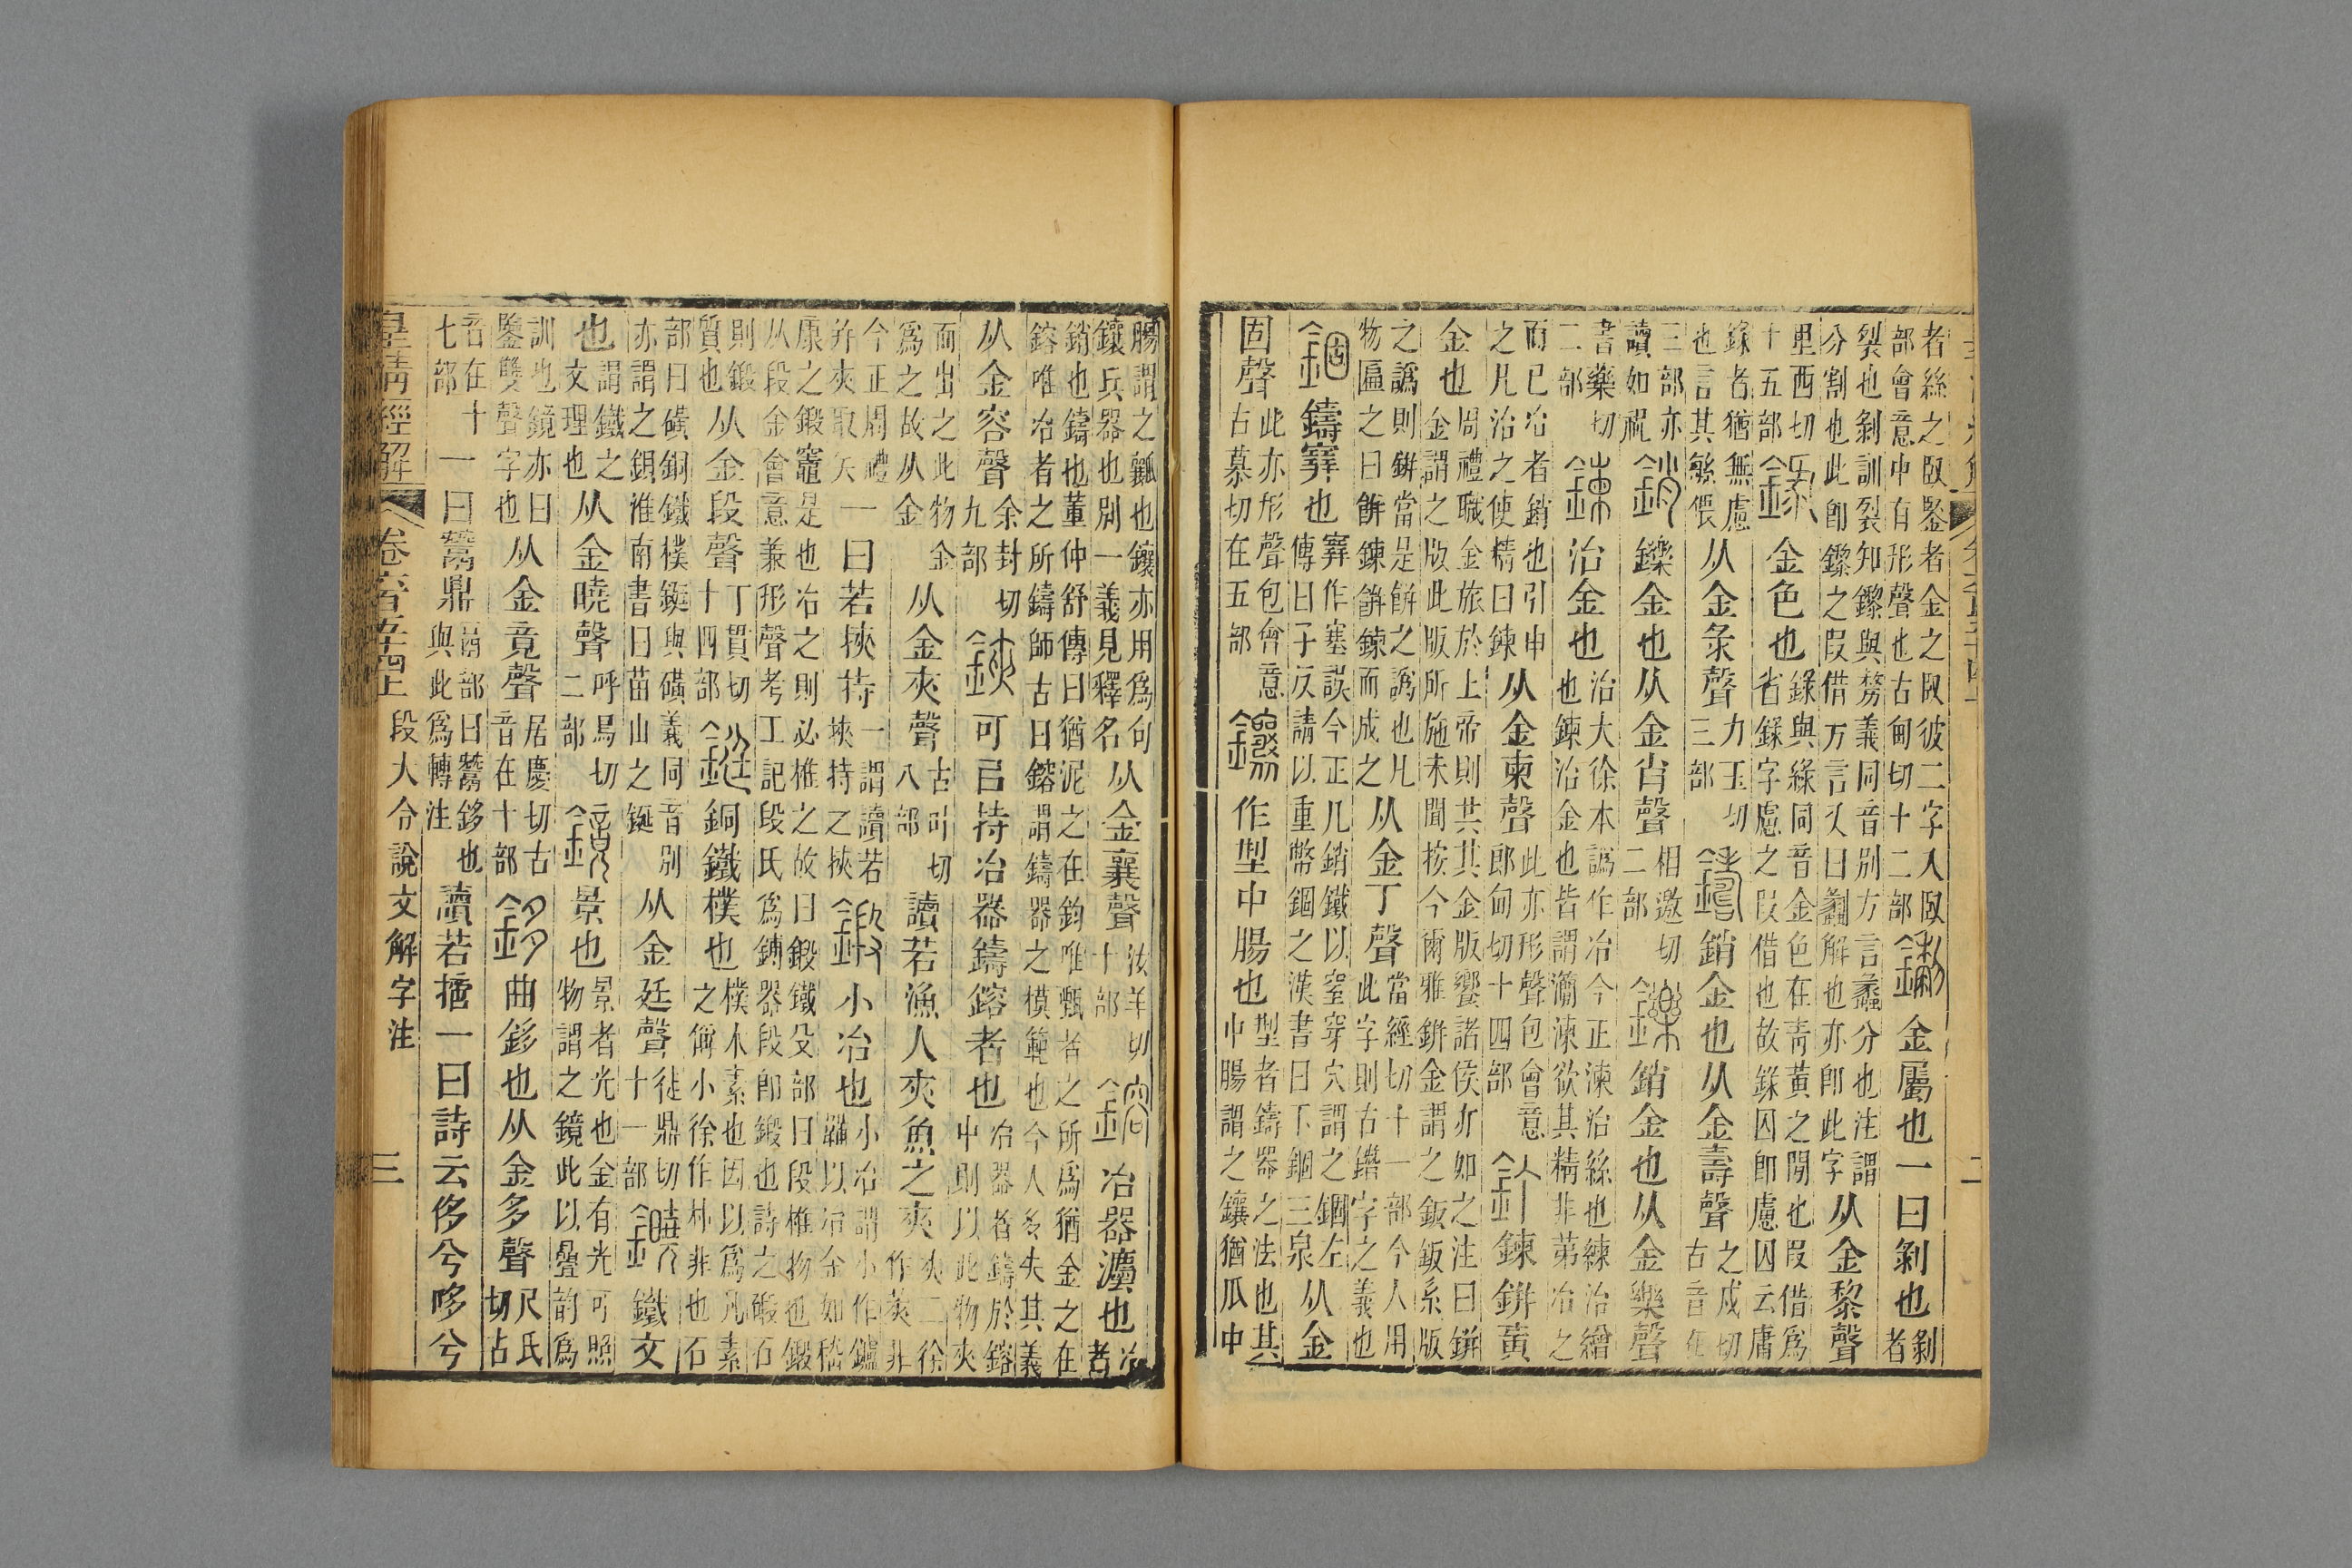 者絲之臤鋻者金之臤彼二字入臤
部會意中有形聲也古甸切十二部
鑗金屬也一曰剝也剝者
裂也剝訓裂知鑗與剺義同音別方言蠡分也注謂
分割也此卽鑗之叚借方言又曰劙解也亦卽此字
从金黎聲
里西切
十五部
錄金色也
錄與綠同音金色在靑黃之閒也叚借爲
省錄字慮之叚借也故錄囚卽慮囚云庸
錄者猶無慮
也言其敏偎
从金彔聲
力玉切
三部
鑄銷金也从金壽聲
之戍切
古音在
三部亦
讀如祝
銷鑠金也从金肖聲
相邀切
二部
鑠銷金也从金樂聲
書藥切
二部
鍊治金也
治大徐本譌作冶今正湅治絲也練治繒
也鍊治金也皆謂瀞湅欲其精非第冶之
而已冶者銷也引申
之凡治之使精曰鍊
从金柬聲
此亦形聲包會意
郎甸切十四部
釘鍊鉼黃
金也
周禮職金旅於上帝則共其金版饗諸侯亦如之注曰鉼
金謂之版此版所施未聞按今爾雅鉼金謂之鈑鈑系版
之譌則鉼當是餠之譌也凡
物匾之曰餠鍊餠鍊而成之
从金丁聲
當經切十一部今人用
此字則古鐕字之義也
錮鑄窫也
窫作塞誤今正凡銷鐵以窒穿穴謂之錮左
傳曰子反請以重幣錮之漢書曰下錮三泉
从金
固聲
此亦形聲包會意
古慕切在五部
鑲作型中腸也
型者鑄器之法也其
中腸謂之鑲猶瓜中
腸謂之瓤也鑲亦用爲句
鑲兵器也別一義見釋名
从金襄聲
汝羊切
十部
鎔冶器灋也
冶者
銷也鑄也董仲舒傳曰猶泥之在鈞唯甄者之所爲猶金之在
鎔唯冶者之所鑄師古曰鎔謂鑄器之模範也今人多失其義
从金容聲
余封切
九部
鋏可㠯持冶器鑄鎔者也
冶器者鑄於鎔
中則以此物夾
而出之此物金
爲之故从金
从金夾聲
古叶切
八部
讀若漁人夾魚之夾
夾二徐
作莢非
今正周禮
幷夾取矢
一曰若挾持
一謂讀若
挾持之挾
鍛小冶也
小冶謂小作鑪
鞴以冶金如嵇
康之鍛竈是也冶之則必椎之故曰鍛鐵殳部曰段椎物也鍛
从段金會意兼形聲考工記段氏爲鎛器段卽鍛也詩之碫石
則鍛
質也
从金段聲
丁貫切
十四部
鋌銅鐵樸也
樸木素也因以爲凡素
之偁小徐作朴非也石
部曰磺銅鐵樸鋌與磺義同音別
亦謂之鋧淮南書曰苗山之鋌
从金廷聲
徒鼎切
十一部
鐵文
也
謂鐵之
文理也
从金曉聲
呼鳥切
二部
鏡景也
景者光也金有光可照
物謂之鏡此以曡韵爲
訓也鏡亦曰
鑒雙聲字也
从金竟聲
居慶切古
音在十部
鉹曲鉹也从金多聲
尺氏
切古
音在十
七部
一曰鬵鼎
鬲部曰鬵鉹也
與此爲轉注
讀若摛一曰詩云侈兮哆兮
皇淸經解 卷六百五十四上 段大令說文解字注 三